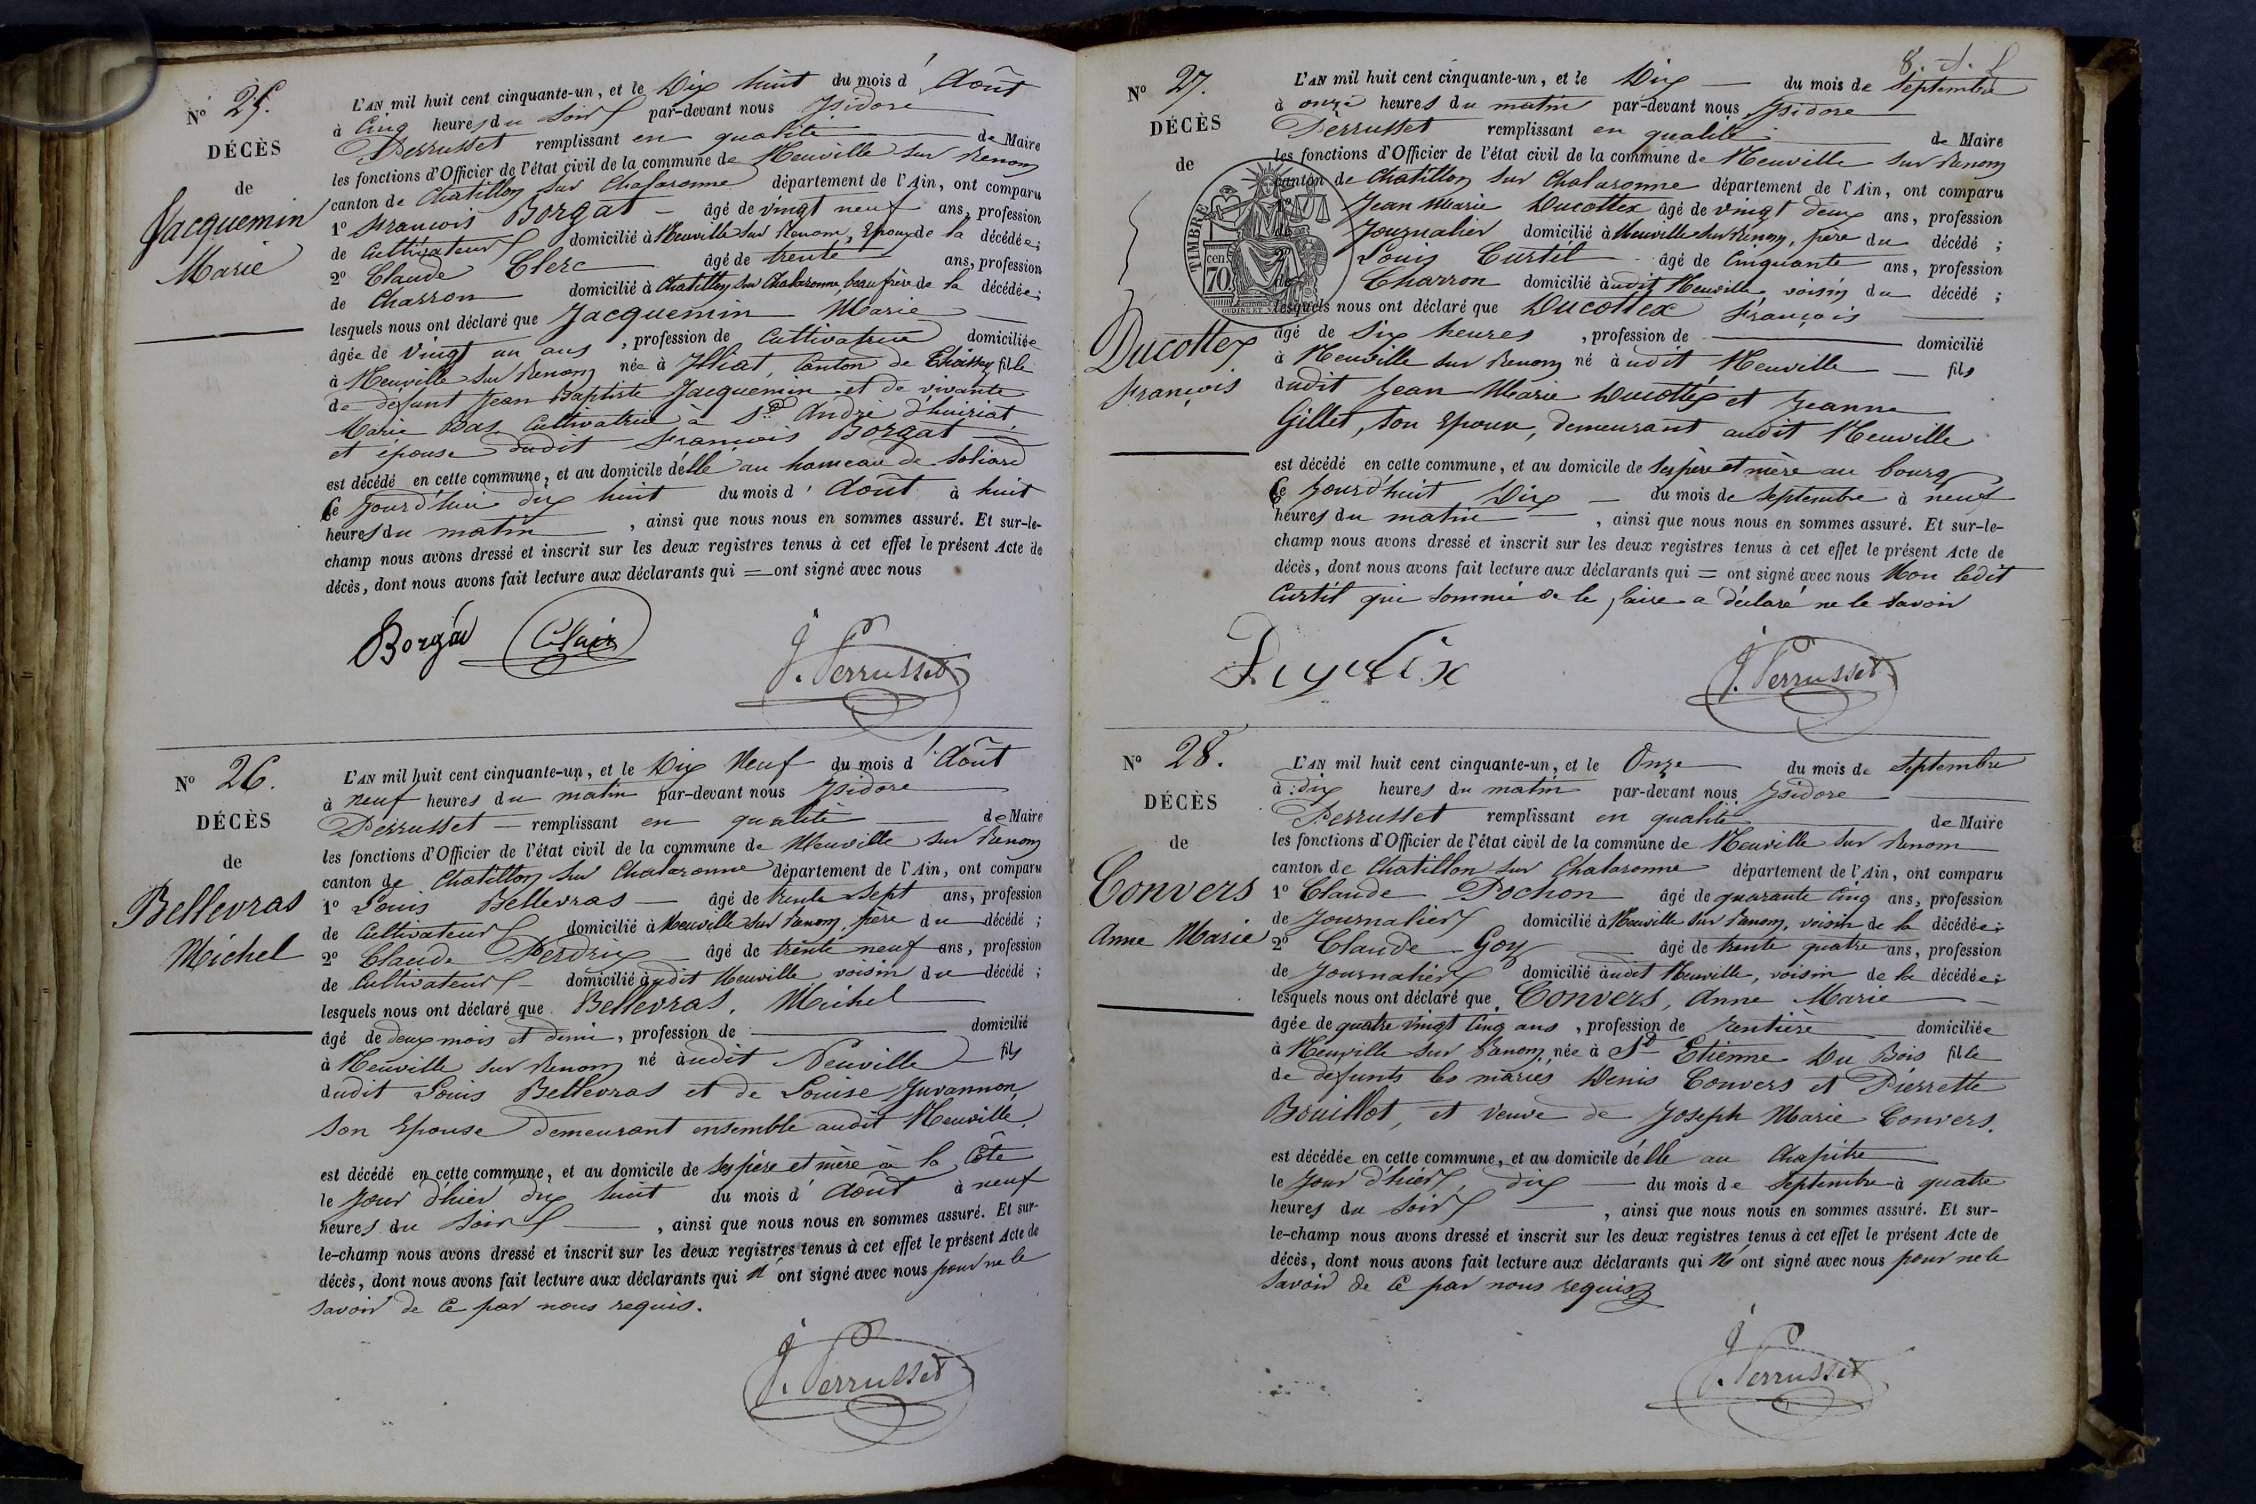 No 25.
DÉCÈS
de
Jacquemin
Marie
L'AN mil huit cent cinquante-un, et le Dix huit du mois d'Août
à Cinq heures du Soir par-devant nous Isidore
Perrusset remplissant en qualité de Maire
les fonctions d'Officier de l'état civil de la commune de Neuville sur Renom
canton de Chatillon sur Chalaronne département de l'Ain, ont comparu
1o François Borgat âgé de vingt neuf ans, profession
de Cultivateur domicilié à Neuville sur Renom, Epoux de la décédée;
2o Claude Clerc âgé de trente ans, profession
de Charron domicilié à Chatillon sur Chalaronne, beau frère de la décédée;
lesquels nous ont déclaré que Jacquemin Marie
âgée de Vingt un ans, profession de Cultivatrice domiciliée
à Neuville sur Renom née à Illiat, Canton de Thoissey fille
de defunt Jean Baptiste Jacquemin et de vivante
Marie Bas Cultivatrice à St André d'huiriat,
et épouse dudit François Borgat
est décédé en cette commune, et au domicile d'elle au hameau de Soliard
Ce Jourd'hui dix huit du mois d'Août à huit
heures du matin, ainsi que nous nous en sommes assuré. Et sur-le-
champ nous avons dressé et inscrit sur les deux registres tenus à cet effet le présent Acte de
décès, dont nous avons fait lecture aux déclarants qui = ont signé avec nous
Borgat Clair J. Perrusset
No 26.
DÉCÈS
de
Bellevras
Michel
L'AN mil huit cent cinquante-un, et le Dix Neuf du mois d'Août
à Neuf heures du matin par-devant nous Isidore
Perrusset remplissant en qualité de Maire
les fonctions d'Officier de l'état civil de la commune de Neuville sur Renom
canton de Chatillon sur Chalaronne département de l'Ain, ont comparu
1o Louis Bellevras âgé de trente sept ans, profession
de Cultivateur domicilié à Neuville sur Renom, père du décédé;
2o Claude Perdrix âgé de trente neuf ans, profession
de Cultivateur domicilié audit Neuville voisin du décédé;
lesquels nous ont déclaré que Bellevras, Michel
âgé de deux mois et demi, profession de domicilié
à Neuville sur Renom né audit Neuville fils
dudit Louis Bellevras et de Louise Juvannon,
son Epouse demeurant ensemble audit Neuville.
est décédé en cette commune, et au domicile de ses père et mère à la Côte
le Jour d'hier dix huit du mois d'Août à neuf
heures du Soir, ainsi que nous nous en sommes assuré. Et sur-
le-champ nous avons dressé et inscrit sur les deux registres tenus à cet effet le présent Acte de
décès, dont nous avons fait lecture aux déclarants qui n'ont signé avec nous pour ne le
savoir de ce par nous requis.
J. Perrusset
No 27.
DÉCÈS
de
Ducottex
François
TIMBRE
70 cen
L'AN mil huit cent cinquante-un, et le Dix du mois de Septembre
à onze heures du matin par-devant nous Isidore
Perrusset remplissant en qualité de Maire
les fonctions d'Officier de l'état civil de la commune de Neuville sur Renom
canton de Chatillon sur Chalaronne département de l'Ain, ont comparu
1o Jean Marie Ducottex âgé de vingt deux ans, profession
de Journalier domicilié à Neuville sur Renom, père du décédé;
2o Louis Curtil âgé de Cinquante ans, profession
de Charron domicilié audit Neuville, voisin du décédé;
lesquels nous ont déclaré que Ducottex François
âgé de Six heures, profession de domicilié
à Neuville sur Renom né audit Neuville fils
dudit Jean Marie Ducottex et Jeanne
Gillet, son Epouse, demeurant audit Neuville
est décédé en cette commune, et au domicile de ses père et mère au bourg
Ce Jourd'huit Dix du mois de Septembre à neuf
heures du matin, ainsi que nous nous en sommes assuré. Et sur-le-
champ nous avons dressé et inscrit sur les deux registres tenus à cet effet le présent Acte de
décès, dont nous avons fait lecture aux déclarants qui = ont signé avec nous Non ledit
Curtil qui sommé de le faire a déclaré ne le savoir
J. Perrusset
No 28.
DÉCÈS
de
Convers
Anne Marie
L'AN mil huit cent cinquante-un, et le Onze du mois de Septembre
à dix heures du matin par-devant nous Isidore
Perrusset remplissant en qualité de Maire
les fonctions d'Officier de l'état civil de la commune de Neuville sur Renom
canton de Chatillon sur Chalaronne département de l'Ain, ont comparu
1o Claude Pochon âgé de quarante Cinq ans, profession
de Journalier domicilié à Neuville sur Renom, voisin de la décédée;
2o Claude Goy âgé de trente quatre ans, profession
de Journalier domicilié audit Neuville, voisin de la décédée;
lesquels nous ont déclaré que Convers, Anne Marie
âgée de quatre vingt Cinq ans, profession de rentière domiciliée
à Neuville sur Renom née à St Etienne Du Bois fille
de defunts les mariés Denis Convers et Pierrette
Bouillot, et veuve de Joseph Marie Convers.
est décédée en cette commune, et au domicile d'elle au Chapitre
le Jour d'hier, dix du mois de Septembre à quatre
heures du Soir, ainsi que nous nous en sommes assuré. Et sur-
le-champ nous avons dressé et inscrit sur les deux registres tenus à cet effet le présent Acte de
décès, dont nous avons fait lecture aux déclarants qui N'ont signé avec nous pour ne le
savoir de ce par nous requis
J. Perrusset